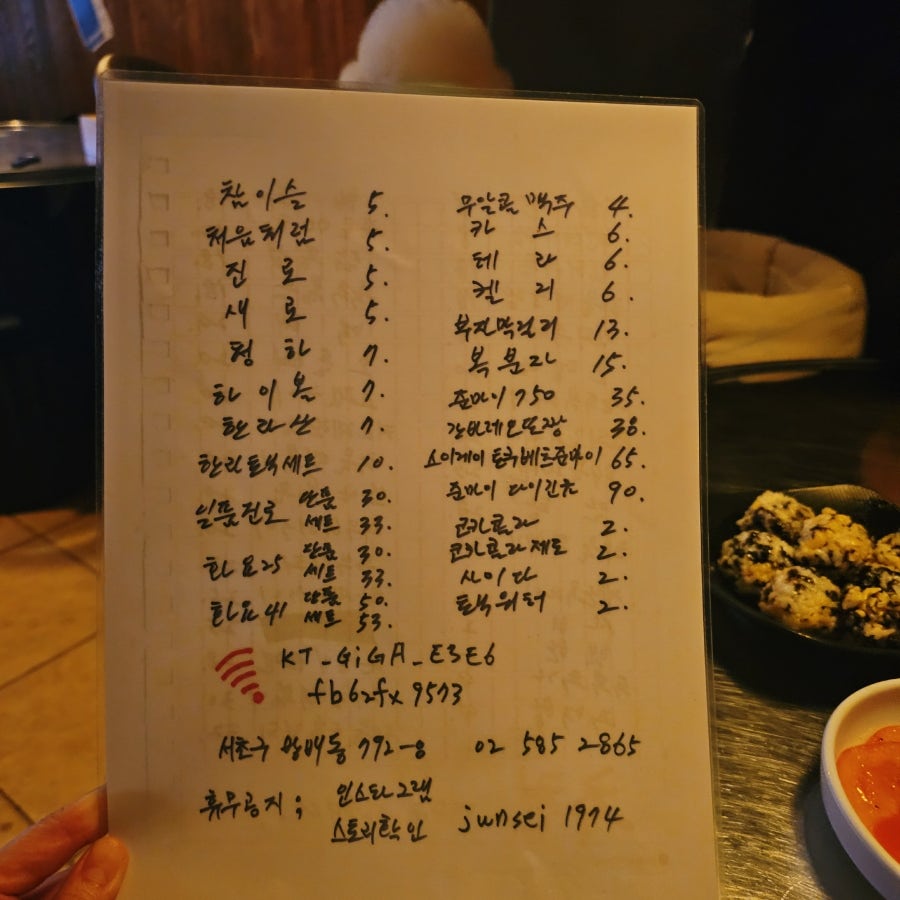 참이슬 5.
처음처럼 5.
진로 5.
새로 5.
청하 7.
하이볼 7.
한라산 7.
한라토닉세트 10.
일품진로 단품 30.
세트 33.
화요25 단품 30.
세트 33.
화요41 단품 50.
세트 53.
무알콜맥주 4.
카스 6.
테라 6.
켈리 6.
부잔막걸리 13.
복분자 15.
준마이 750 35.
간바레오또상 38.
쇼이게이 토쿠베츠준마이 65.
준마이 다이긴죠 90.
코카콜라 2.
코카콜라제로 2.
사이다 2.
토닉워터 2.
KT_GiGA_E3E6
fb62fx9573
서초구 방배동 792-8 02 585 2865
휴무공지; 인스타그램
스토리확인 junsei 1974